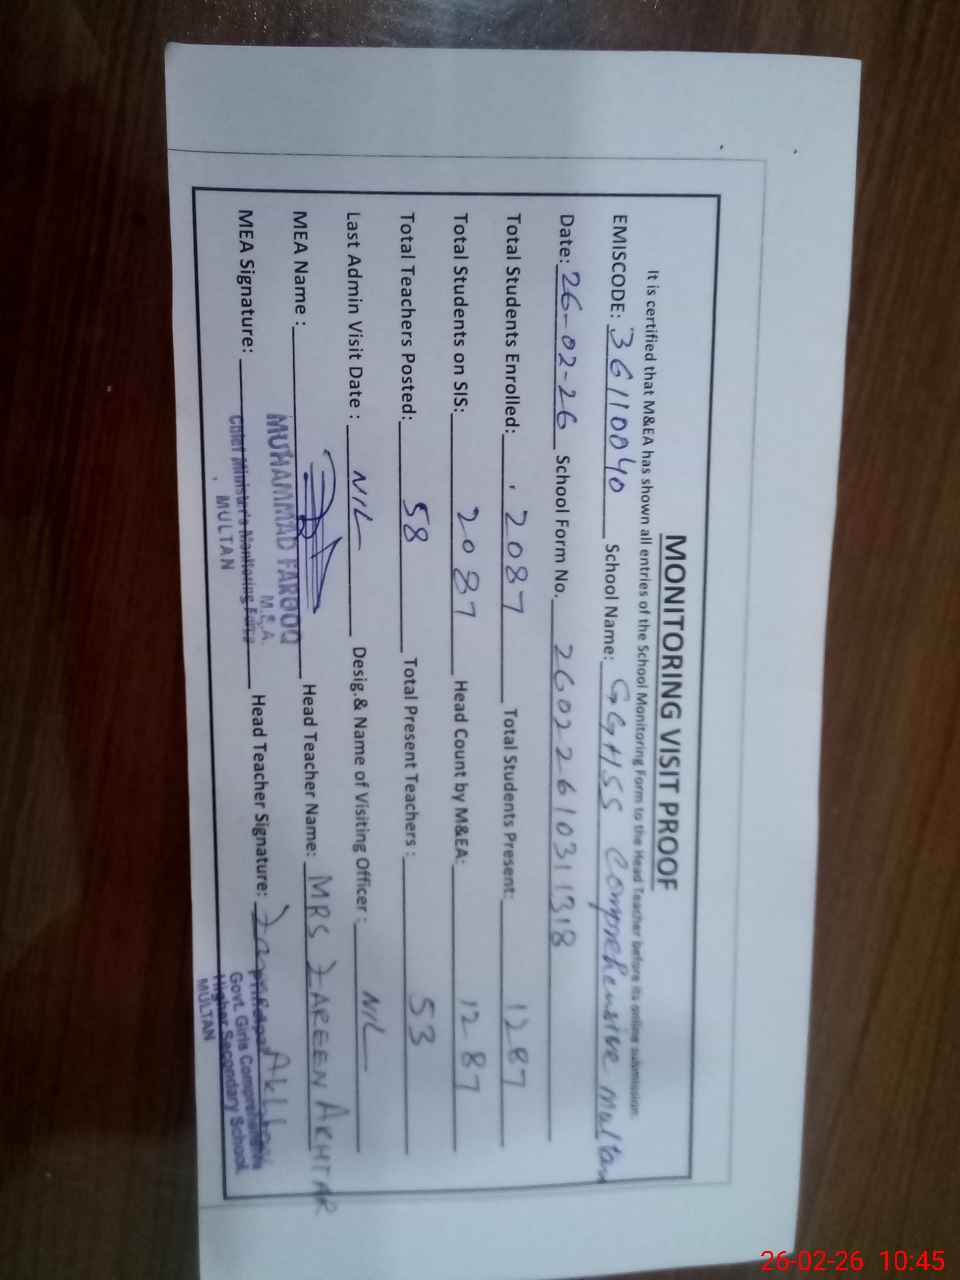 MONITORING VISIT PROOF
It is certified that M&EA has shown all entries of the School Monitoring Form to the Head Teacher before its online submission.
EMISCODE: 36110040 School Name: GGHSS Comprehensive Multan
Date: 26-02-26 School Form No. 26022610311318
Total Students Enrolled: 2087 Total Students Present: 1287
Total Students on SIS: 2087 Head Count by M&EA: 1287
Total Teachers Posted: 58 Total Present Teachers: 53
Last Admin Visit Date : NIL Desig.& Name of Visiting Officer : NIL
MEA Name : Head Teacher Name: MRS ZAREEN AKHTAR
MUHAMMAD FAROOQ
M.E.A.
MEA Signature: Head Teacher Signature: Zareen Akhtar
Chief Minister's Monitoring Force
MULTAN
Principal
Govt. Girls Comprehensive
Higher Secondary School
MULTAN
26-02-26 10:45